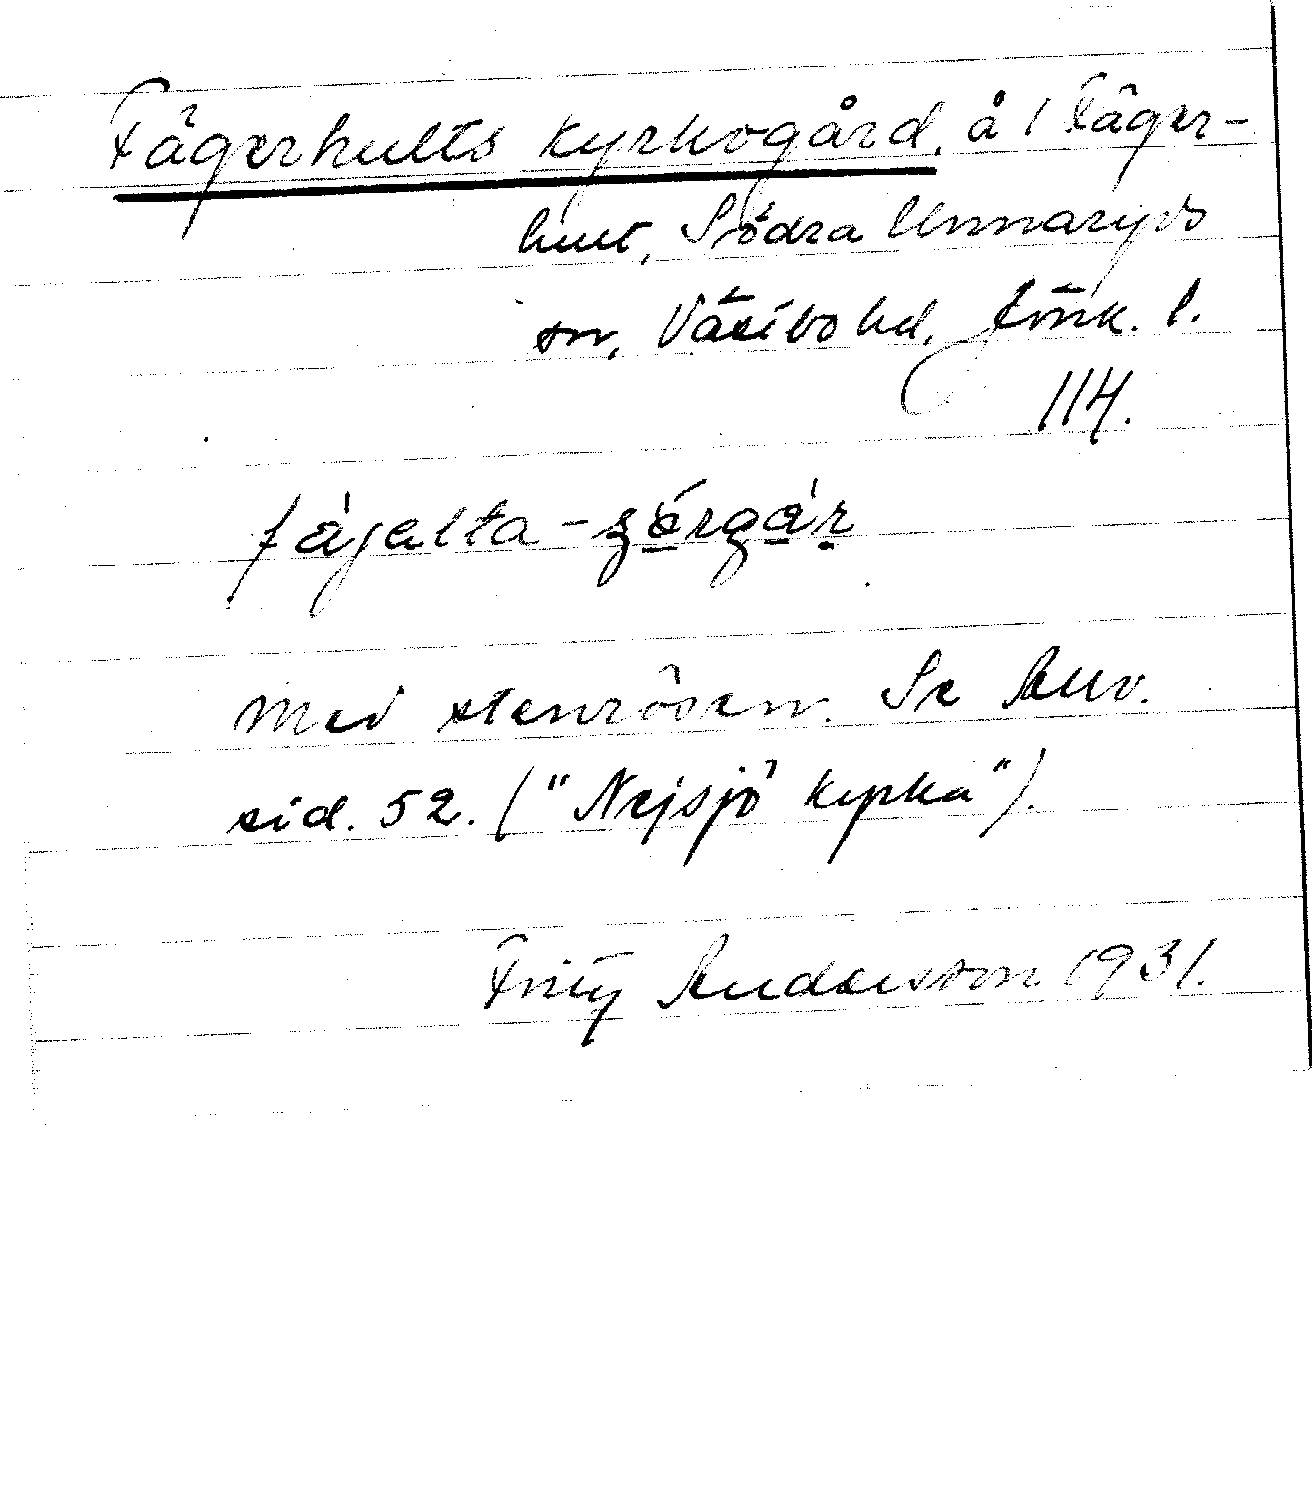 Fägerhults Kyrkogård, å i Fäger-
hult, Södra Unnaryds
sn, Västbo hd, Jönk. l.
114.
fájalta-
Med stenrösen. Se Allv.
sid. 52. ("Nejsjö kyrka").
Fritz Andersson 1931.